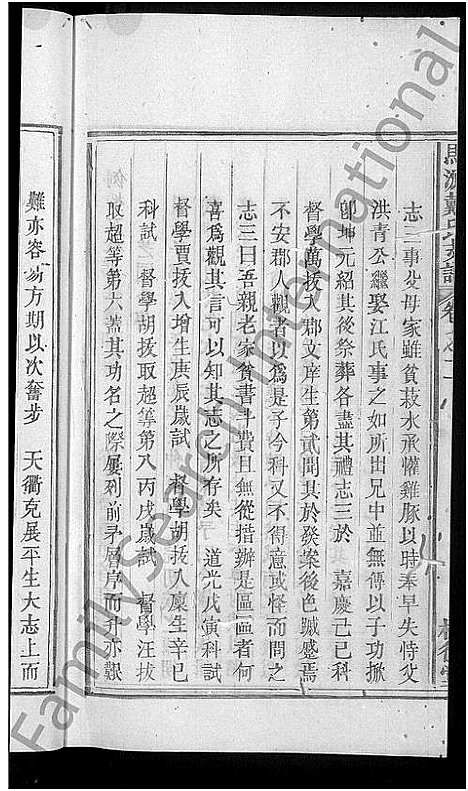 馬源戴氏
志三事父母家雖貧菽水承懽雞豚以時奉早失恃父
洪青公繼娶江氏事之如所出兄中並無傳以子功掀
卽坤元紹其後祭葬各盡其禮志三於　嘉慶己巳科
督學萬拔入郡文庠生第貳聞其於發案後色蹴蹙焉
不安郡人觀者以爲是子今科又不得意或怪而問之
志三曰吾親老家貧書斗費且無從措辦是區區者何
喜爲觀其言可以知其志之所存矣　道光戊寅科試
督學賈拔入增生庚辰歲試　督學胡拔入廩生辛巳
科試　督學胡拔取超等第八丙戌歲試　督學汪拔
取超等第六蓋其功名之際屢列前矛層序而升亦艱
難亦容易方期以次奮步　天衢克展平生大志上而
FamilySearch International